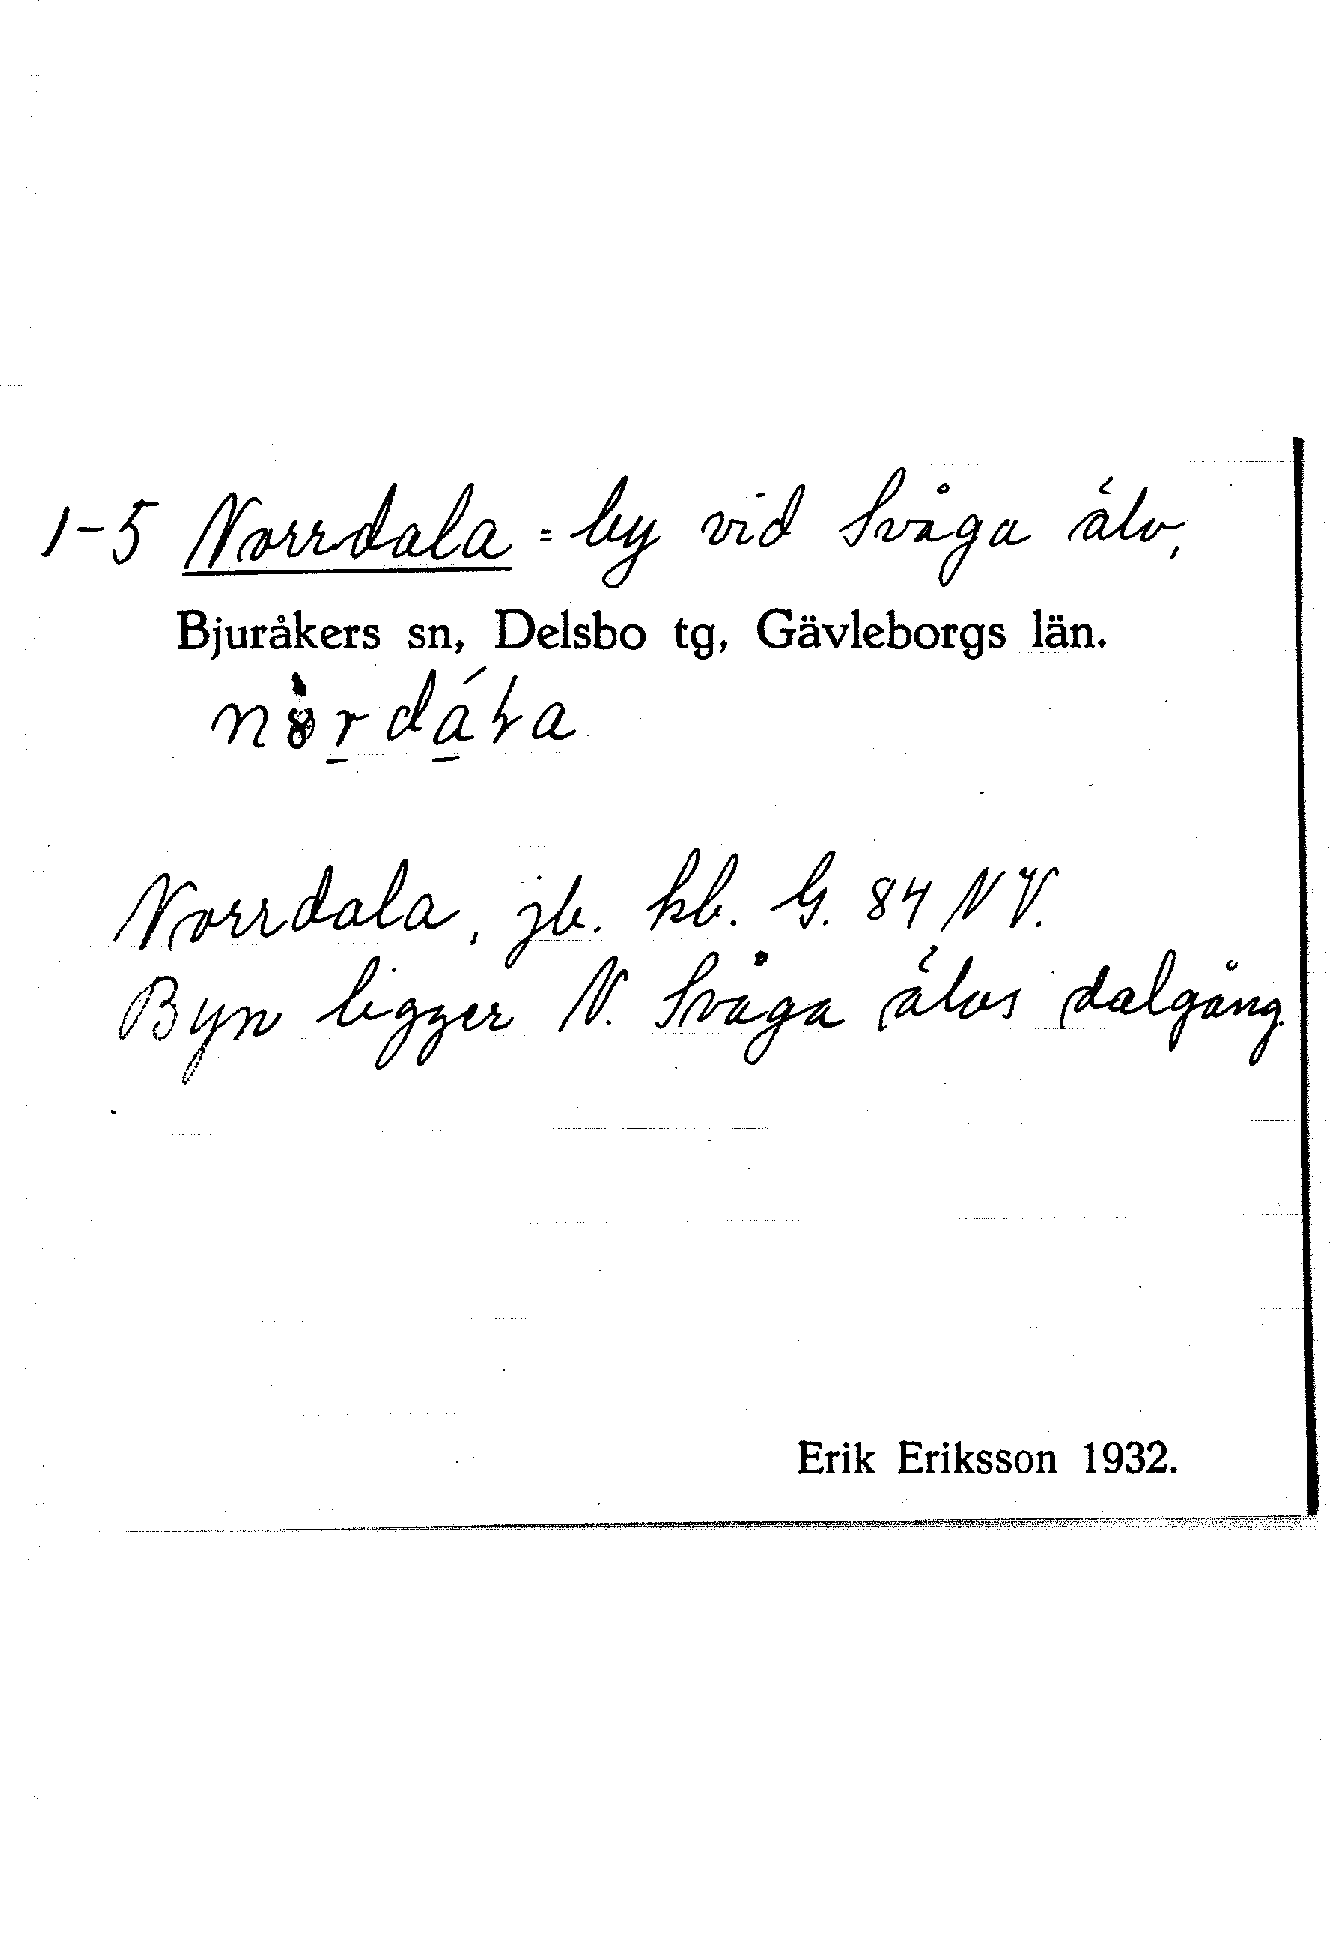 1-5 Norrdala = by vid Svåga älv,
Bjuråkers sn, Delsbo tg, Gävleborgs län.
Norrdala, jb. kb. G. 84 NV.
Byn ligger N. Svåga älvs dalgång.
Erik Eriksson 1932.